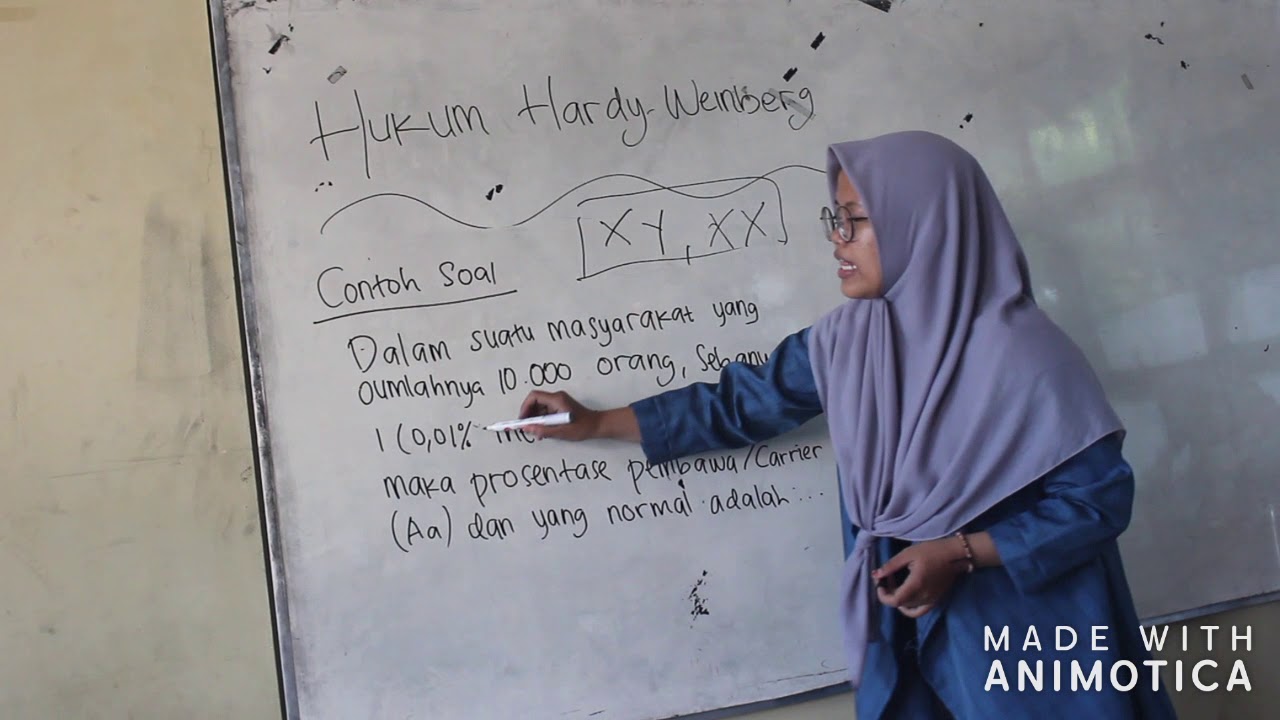 Hukum Hardy-Weinberg
XY, XX
Contoh Soal
Dalam suatu masyarakat yang
Oumlahnya 10.000 orang,
1 (0,01%
maka prosentase pembawa/Carrier
(Aa) dan yang normal adalah...
MADE WITH
ANIMOTICA